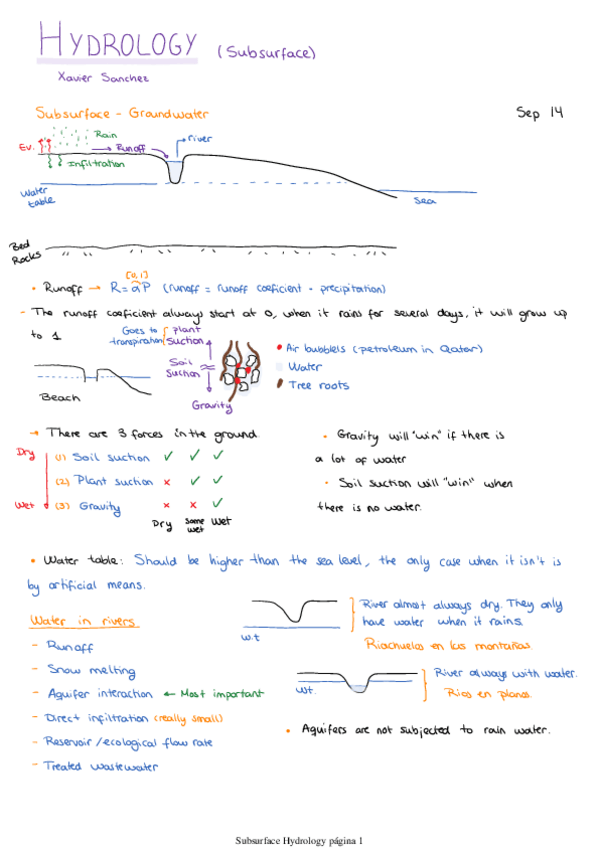 HYDROLOGY (Subsurface)
Xavier Sanchez
Subsurface - Groundwater
Sep 14
Rain
river
Ev.
Runoff
Infiltration
Water table
Sea
Bed Rocks
• Runoff → R = aP (runoff = runoff coeficient · precipitation)
[0,1]
- The runoff coeficient always start at 0, when it rains for several days, it will grow up
to 1
Goes to transpiration
plant suction
Soil suction
Gravity
Beach
• Air bubbels (petroleum in Qatar)
Water
Tree roots
→ There are 3 forces in the ground
Dry
(1) Soil suction ✓ ✓ ✓
(2) Plant suction × ✓ ✓
Wet (3) Gravity × × ✓
Dry some wet Wet
• Gravity will "win" if there is
a lot of water
• Soil suction will "win" when
there is no water.
• Water table: Should be higher than the sea level, the only case when it isn't is
by artificial means.
Water in rivers
- Runoff
- Snow melting
- Aquifer interaction ← Most important
- Direct infiltration (really small)
- Reservoir / ecological flow rate
- Treated wastewater
w.t
River almost always dry. They only
have water when it rains.
Riachuelos en las montañas.
wt.
River always with water.
Rios en planos.
• Aquifers are not subjected to rain water.
Subsarface Hydrology página 1